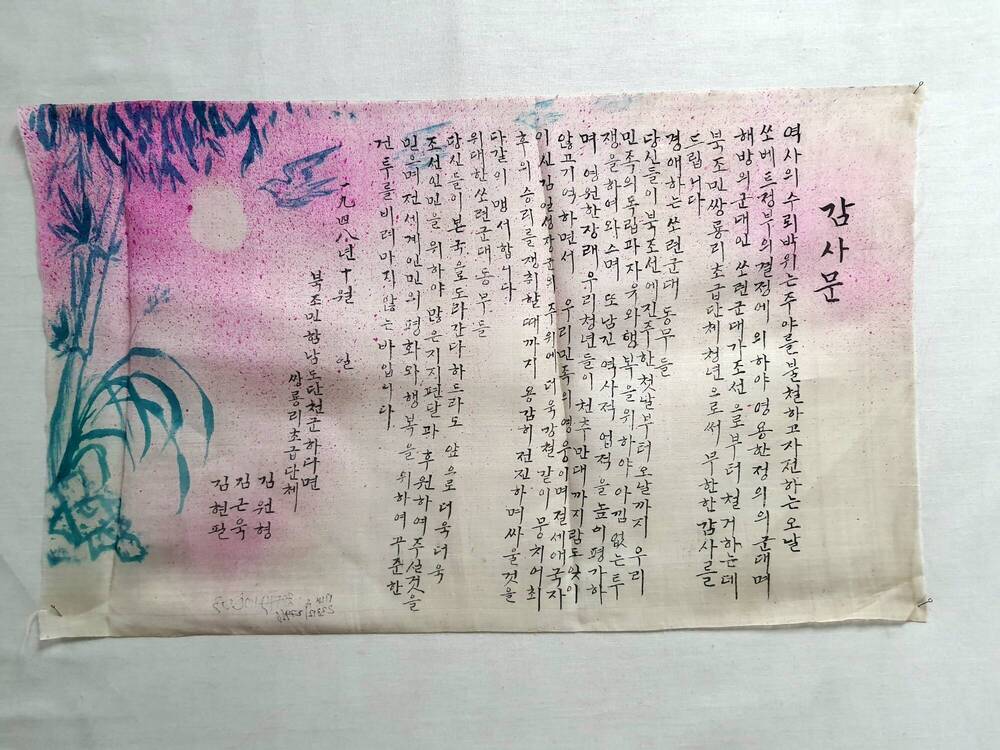 감사문
역사의 수뢰박위는 주야를 불철하고 자전하는 오날
쏘베트정부의 결정에 의하야 영용한 정의의 군대며
해방의 군대인 쏘련군대가 조선으로부터 철거하는데
북조민쌍룡리초급단체 청년으로써 무한한 감사를
드립니다
경애하는 쏘련군대 동무들
당신들이 북조선에 진주한 첫날부터 오날까지 우리
민족의 독립과 자유와 행복을 위하야 아낌없는 투
쟁을 하여와스며 또 남긴 역사적 업적을 높이 평가하
며 영원한 장래 우리 청년들이 천추만대까지람도 잊이
않고 기역하면서 우리 민족의 영웅이며 절세애국자
이신 김일성장군의 주위에 더욱 강철같이 뭉치여 최
후의 승리를 쟁취할때까지 용감히 전진하며 싸울것을
다같이 맹서합니다.
위대한 쏘련군대 동무들
당신들이 본국으로 도라간다 하드라도 앞으로 더욱더욱
조선인민을 위하야 많은 지지편달과 후원하여주실것을
믿으며 전세계 인민의 평화와 행복을 위하여 꾸준한
건투를 비려 마지않는 바입니다.
一九四八년 十월 일
북조민함남도단천군하다면
쌍룡리초급단체
김원형
김근욱
김현필